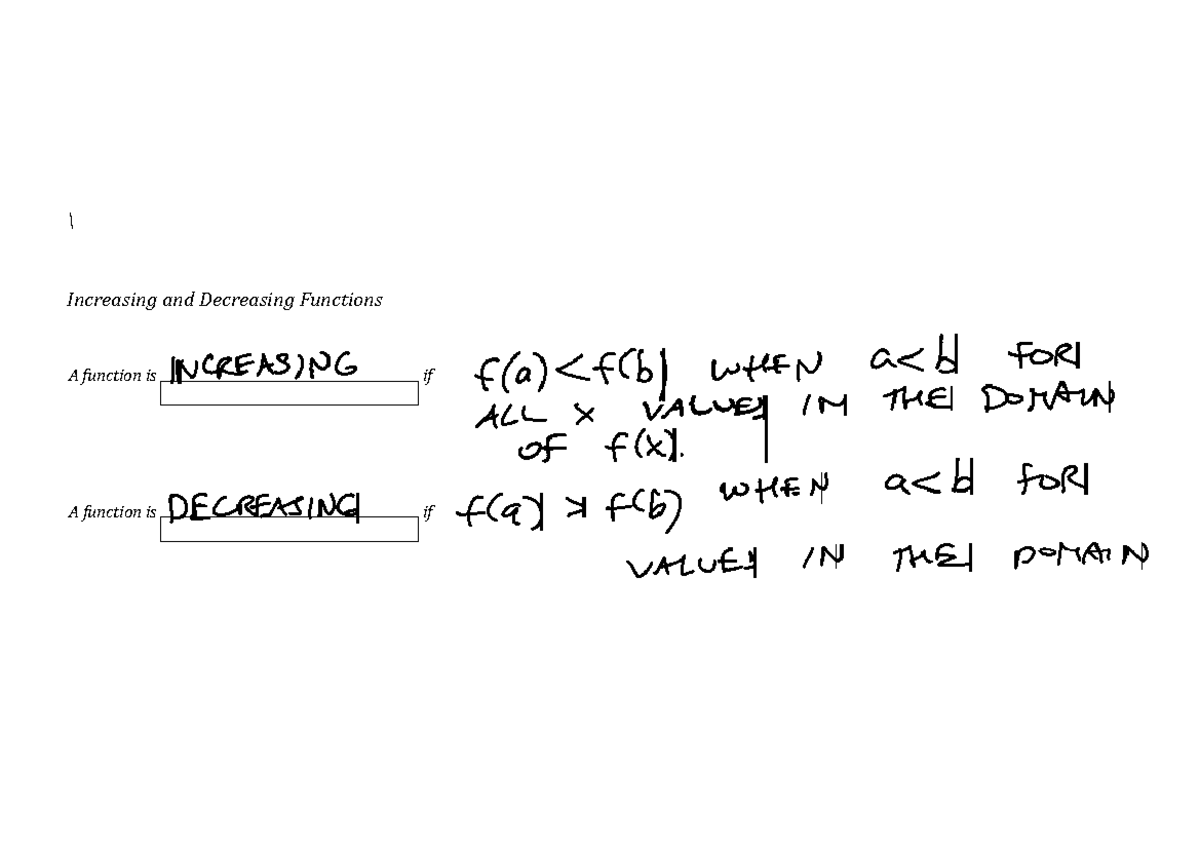 Increasing and Decreasing Functions
A function is INCREASING if f(a) < f(b) WHEN a < b FOR
ALL x VALUES IN THE DOMAIN
OF f(x).
A function is DECREASING if f(a) > f(b) WHEN a < b FOR
VALUES IN THE DOMAIN